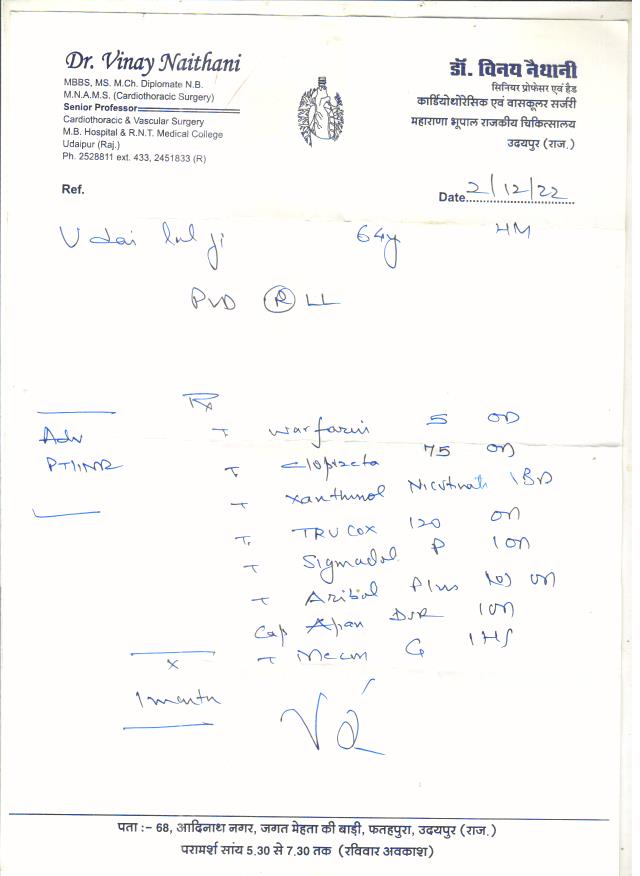 Dr. Vinay Naithani
MBBS, MS. M.Ch. Diplomate N.B.
M.N.A.M.S. (Cardiothoracic Surgery)
Senior Professor
Cardiothoracic & Vascular Surgery
M.B. Hospital & R.N.T. Medical College
Udaipur (Raj.)
Ph. 2528811 ext. 433, 2451833 (R)
डॉ. विनय नैथानी
सिनियर प्रोफेसर एवं हैड
कार्डियोथोरेसिक एवं वासकूलर सर्जरी
महाराणा भूपाल राजकीय चिकित्सालय
उदयपुर (राज.)
Ref.
Date 2/12/22
Udai lal ji 64y HM
PVD R LL
Rx
Adv
PT/INR
T warfarin 5 OD
T 75 OD
T Xanthinol 1BD
T. TRU COX 120 OD
T Sigmadol P 1 OD
T Plus OD
Cap DSR 1 OD
T G 1 HS
x
1 month
पता :- 68, आदिनाथ नगर, जगत मेहता की बाड़ी, फतहपुरा, उदयपुर (राज.)
परामर्श सांय 5.30 से 7.30 तक (रविवार अवकाश)